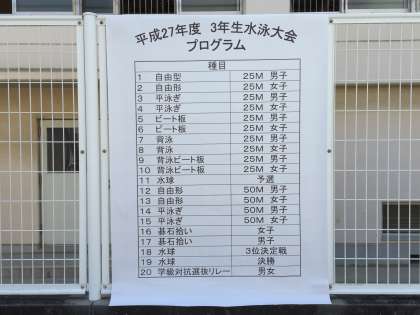 平成27年度 3年生水泳大会
プログラム
種目
1 自由型 25M 男子
2 自由形 25M 女子
3 平泳ぎ 25M 男子
4 平泳ぎ 25M 女子
5 ビート板 25M 男子
6 ビート板 25M 女子
7 背泳 25M 男子
8 背泳 25M 女子
9 背泳ビート板 25M 男子
10 背泳ビート板 25M 女子
11 水球 予選
12 自由形 50M 男子
13 自由形 50M 女子
14 平泳ぎ 50M 男子
15 平泳ぎ 50M 女子
16 碁石拾い 女子
17 碁石拾い 男子
18 水球 3位決定戦
19 水球 決勝
20 学級対抗選抜リレー 男女